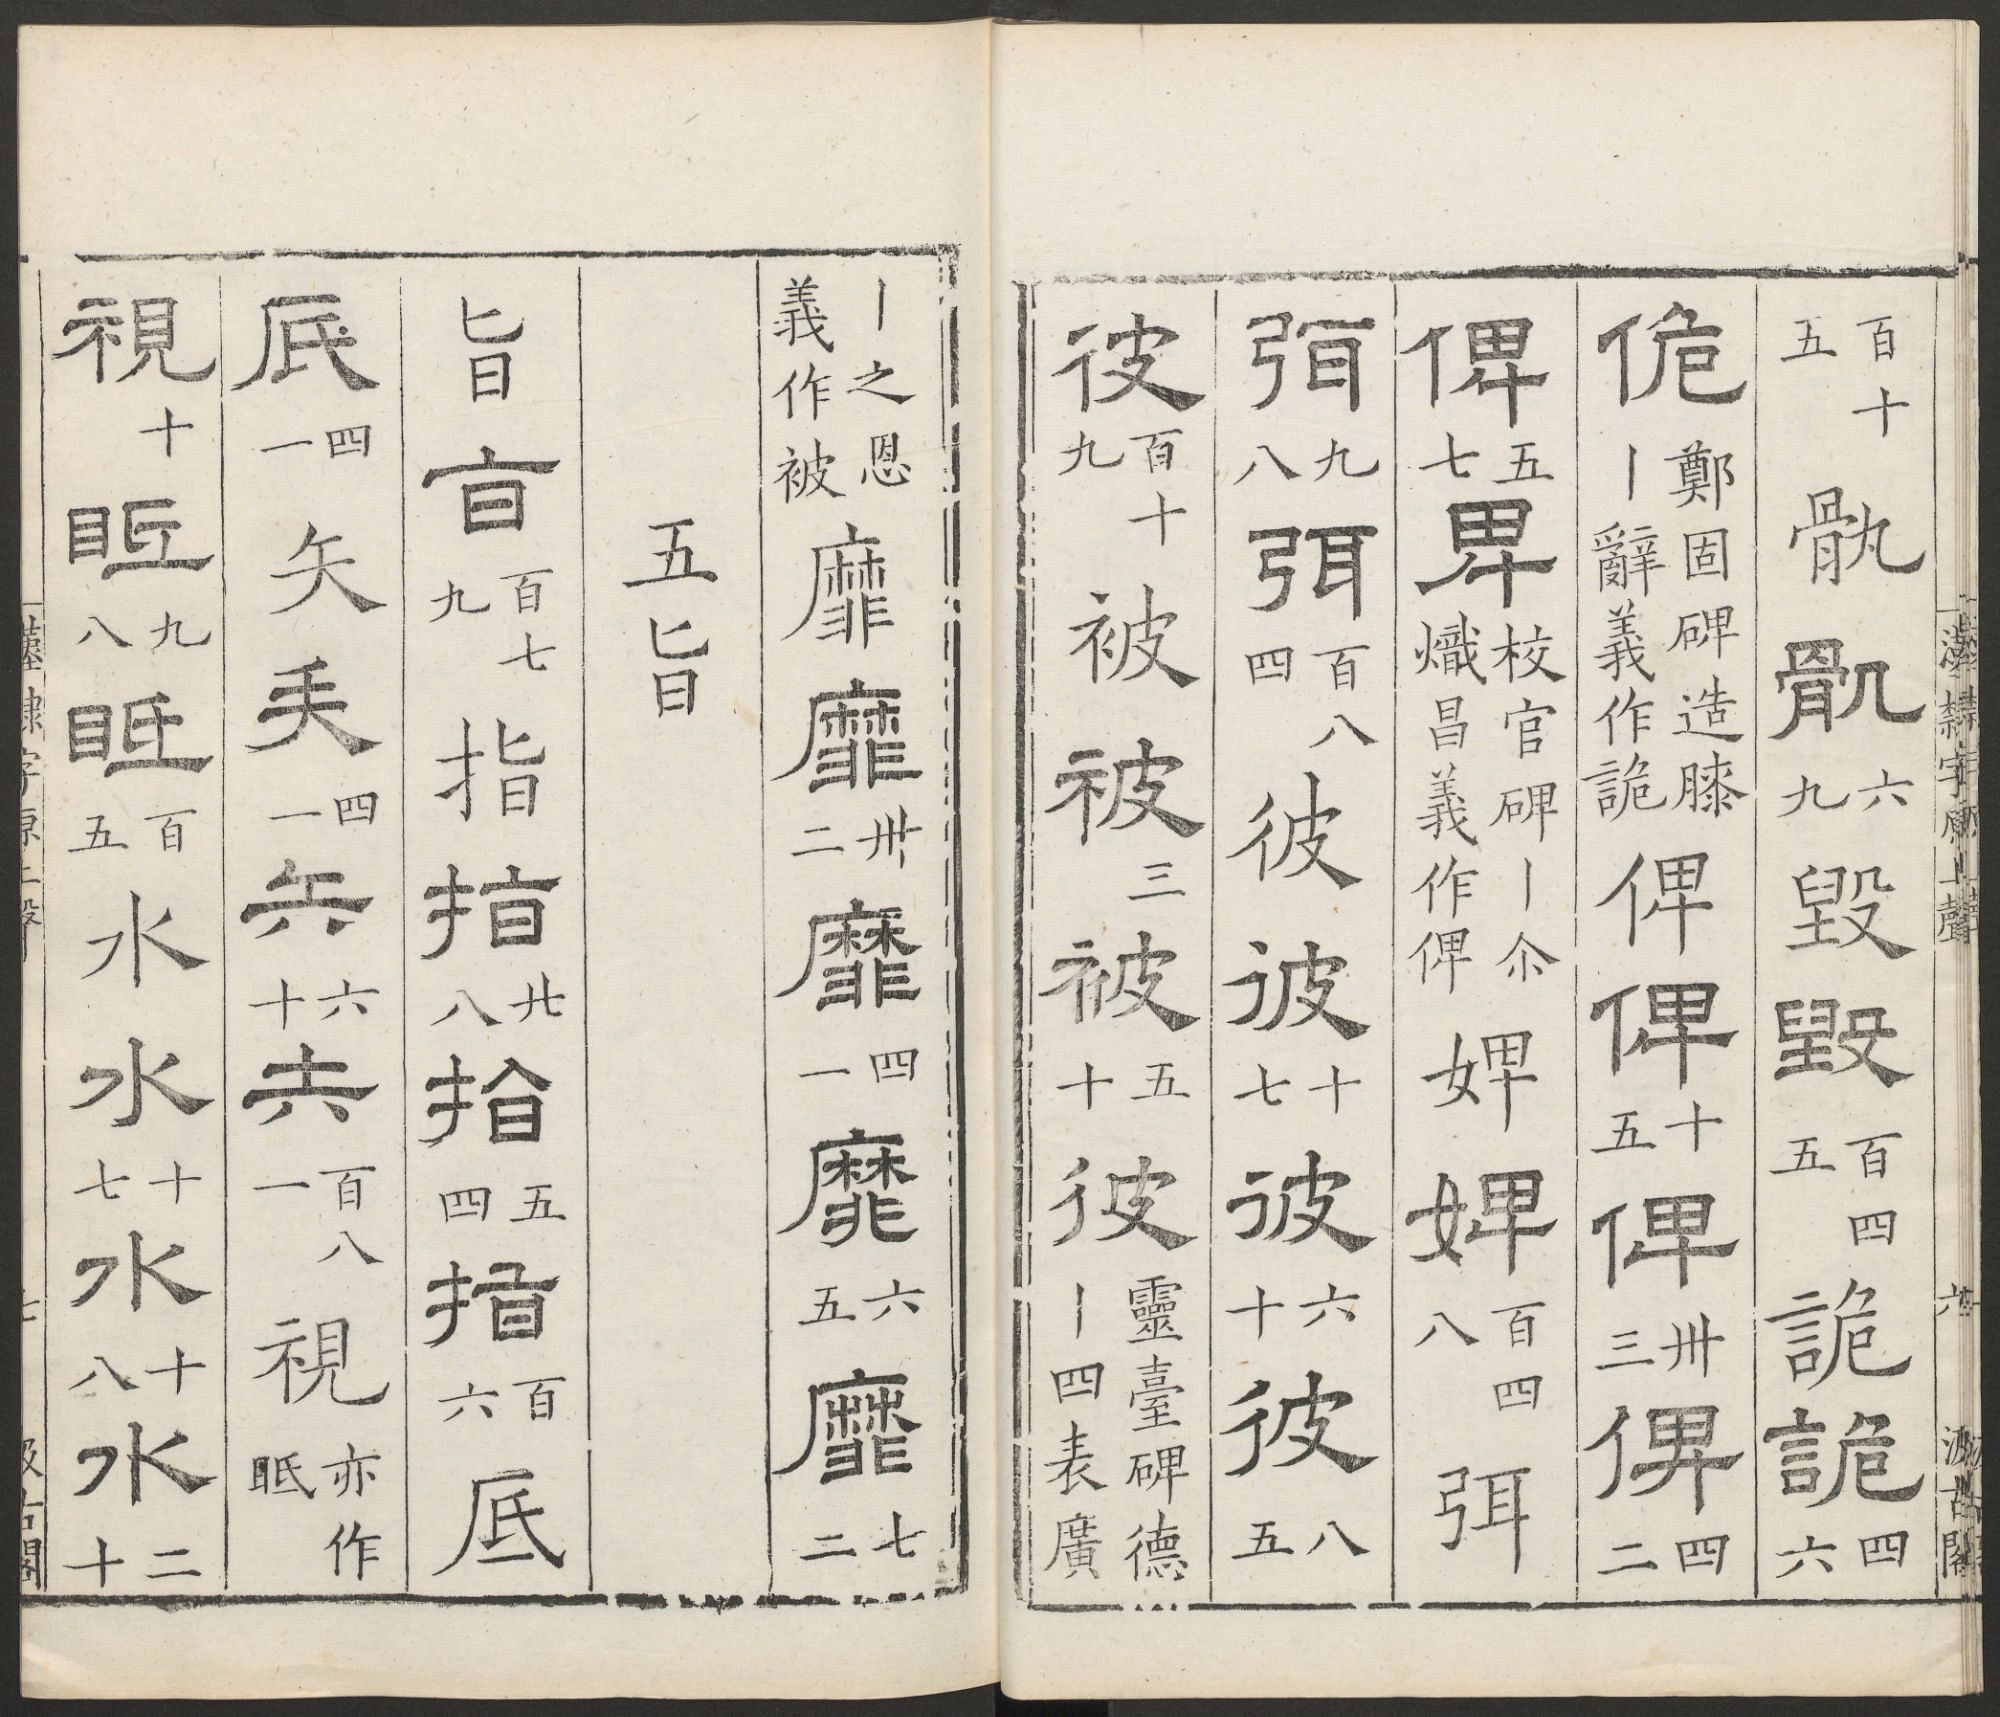 百十五 骫 骫 六九 毀 毀 百四五 詭 詭 四六
佹 鄭固碑造膝丨辭義作詭 俾 俾 十五 俾 卅三 俾 四二
俾 五七 卑 校官碑丨尒熾昌義作俾 婢 婢 百四八 弭
弭 九八 弭 百八四 彼 彼 十七 彼 六十 彼 八五
彼 百十九 被 被 三 被 五十 彼 靈臺碑德丨四表廣
丨之恩義作被 靡 靡 卅二 靡 四一 靡 六五 靡 七二
五旨
旨 旨 百七九 指 指 廿八 指 五四 指 百六 底
底 四一 矢 矢 四一 矢 六十 矢 百八一 視 亦作眡
視 十 眡 九八 眡 百五 水 水 十七 水 十八 水 二十
漢隸字源上聲 六 汲古閣